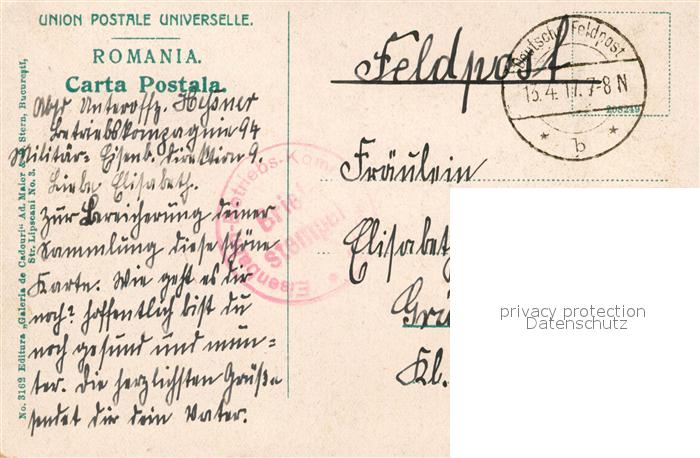 UNION POSTALE UNIVERSELLE.
ROMANIA.
Carta Postala.
Abs Unteroffz. Hessner
Betriebskompagnie 94
Militär-Eisenb. Direktion 9.
Liebe Elisabeth.
Zur Bereicherung deiner
Sammlung diese schöne
Karte. Wie geht es dir
noch? Hoffentlich bist du
noch gesund und mun-
ter. Die herzlichsten Grüße
sendet dir dein Vater.
No. 3162 Editura „Galeria de Cadouri" Ad. Maier & D. Stern, Bucureşti,
Str. Lipscani No. 3.
Eisenbahn-Betriebs-Kom
Brief
Stempel
Feldpost
Deutsche Feldpost
13.4.17. 7-8 N
* b *
208249
Fräulein
Elisabeth
Grü
Kl.
privacy protection
Datenschutz